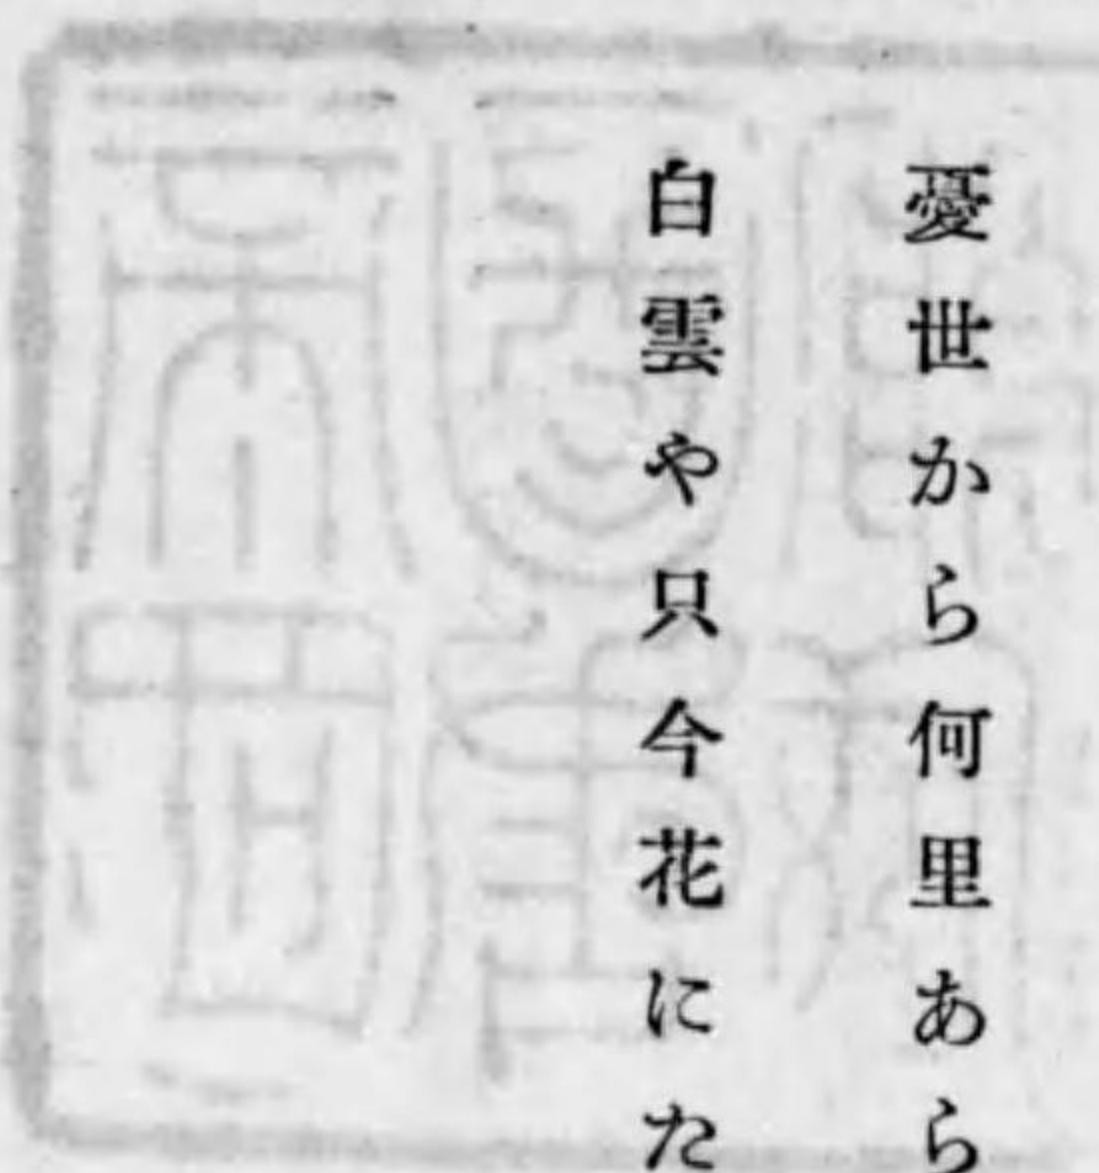 憂世から何里あら
白雲や只今花にた